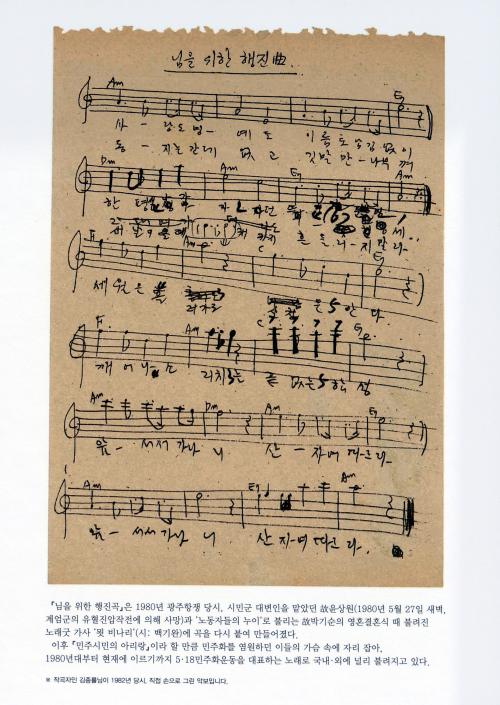 님을 위한 행진曲.
Am E7
사 — 랑도 명 — 예도 이름도 남김 없이
동 — 지는 간데 없고 깃발만 — 나부껴
Dm Am E7 Am
한 평생 나가자던
흔 들리 — 지 말라
F Am C E7
세월은
F Am C E7
깨어나 외치는 끝없는 함성
Am Dm Am E7
앞 — 서서 가나니 산 — 자여 따르라
Am E7 Am
앞 — 서서 가나니 산자여 따르라.
『님을 위한 행진곡』은 1980년 광주항쟁 당시, 시민군 대변인을 맡았던 故윤상원(1980년 5월 27일 새벽,
계엄군의 유혈진압작전에 의해 사망)과 '노동자들의 누이'로 불리는 故박기순의 영혼결혼식 때 불려진
노래굿 가사 '묏 비나리'(시: 백기완)에 곡을 다시 붙여 만들어졌다.
이후 『민주시민의 아리랑』이라 할 만큼 민주화를 염원하던 이들의 가슴 속에 자리 잡아,
1980년대부터 현재에 이르기까지 5·18민주화운동을 대표하는 노래로 국내·외에 널리 불려지고 있다.
※ 작곡자인 김종률님이 1982년 당시, 직접 손으로 그린 악보입니다.